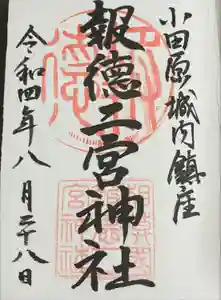 小田原城内鎮座
報徳二宮神社
令和四年八月二十八日